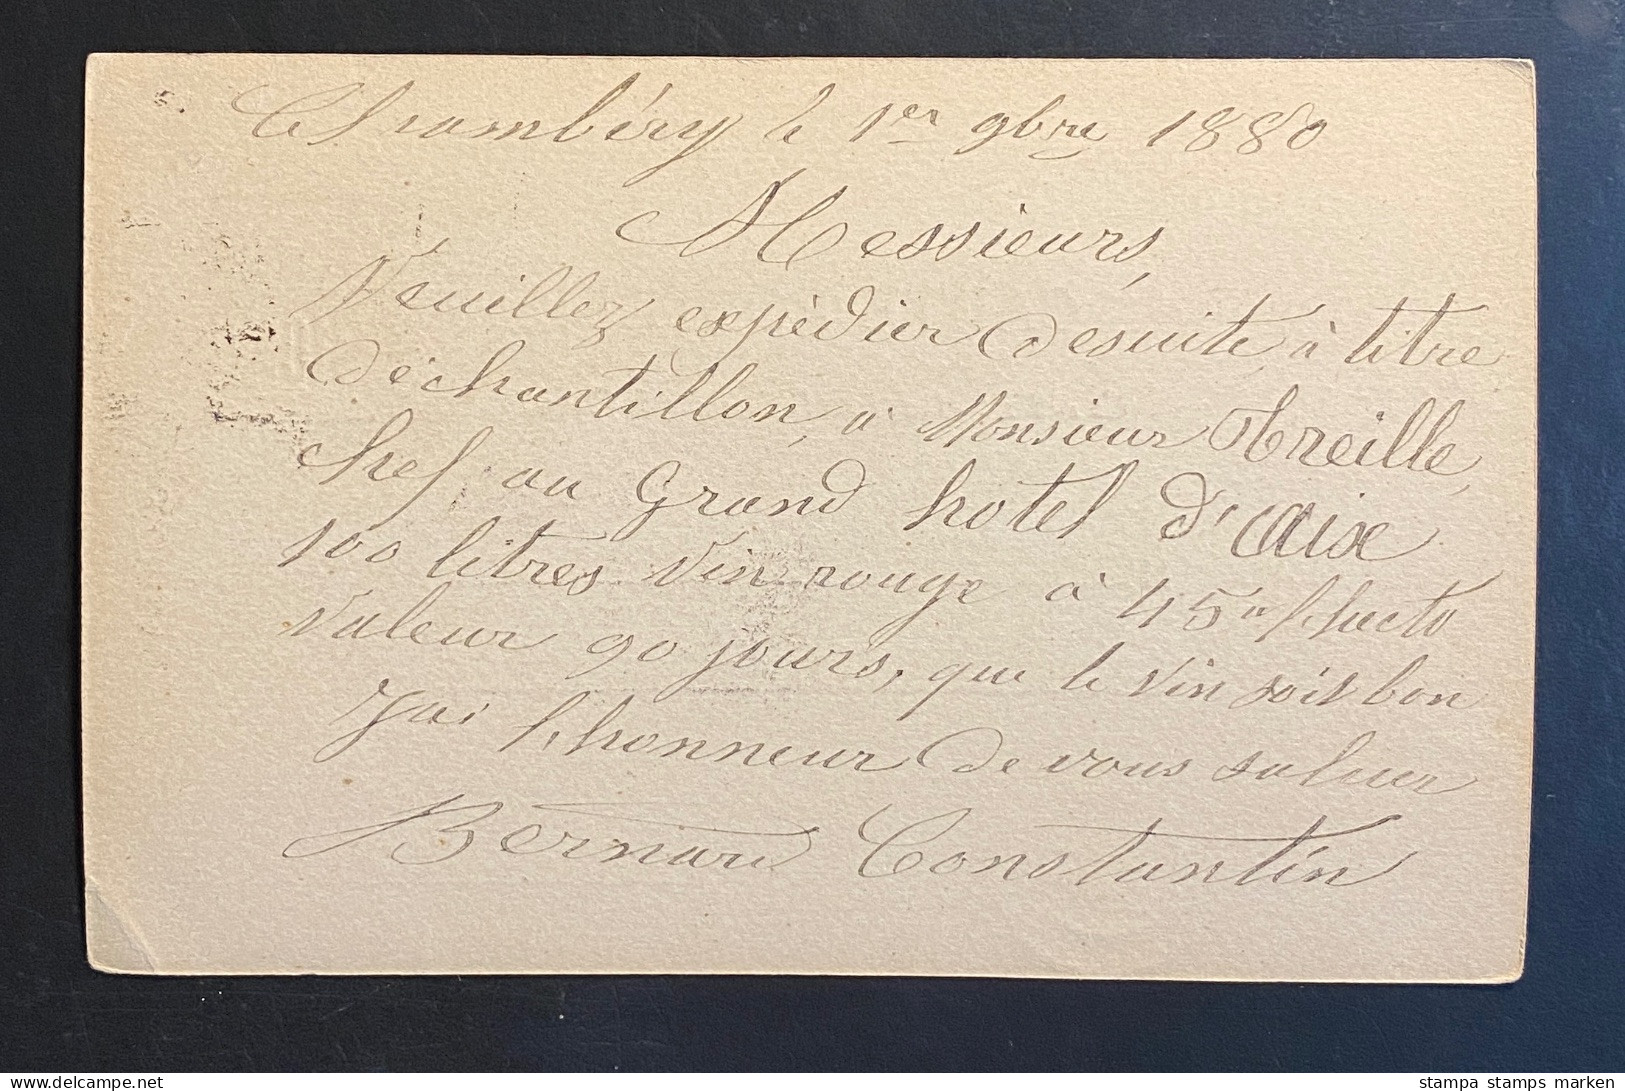 Chambéry le 1er 9bre 1880
Messieurs,
Veuillez expédier desuite, à titre
déchantillon, à Monsieur Treille,
chef au Grand hotel d'Aix
100 litres vin rouge à 45" l'hecto
Valeur 90 jours, que le vin soit bon
J'ai l'honneur de vous saluer
Bernard Constantin
stampa stamps marken